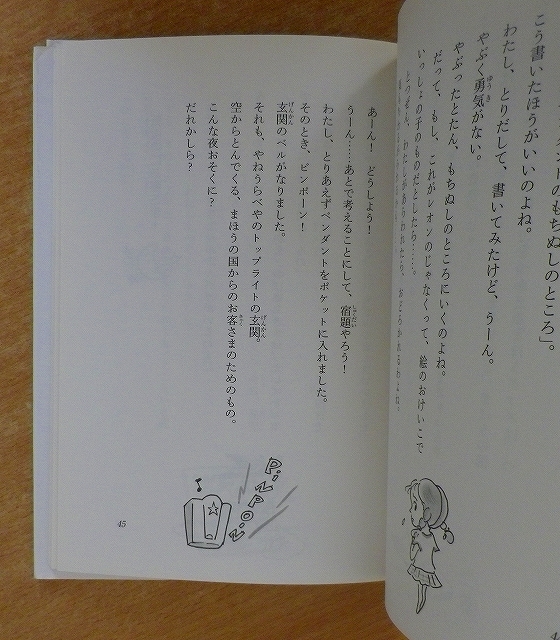 トのもちぬしのところ」。
こう書いたほうがいいのよね。
わたし、とりだして、書いてみたけど、うーん。
やぶく勇気がない。
やぶったとたん、もちぬしのところにいくのよね。
だって、もし、これがレオンのじゃなくって、絵のおけいこで
いっしょの子のものだとしたら……。
とつぜん、わたしがあらわれたら、おどろかれるわよね。
あーん! どうしよう!
うーん……あとで考えることにして、宿題やろう!
わたし、とりあえずペンダントをポケットに入れました。
そのとき、ピンポーン!
玄関のベルがなりました。
それも、やねうらべやのトップライトの玄関。
空からとんでくる、まほうの国からのお客さまのためのもの。
こんな夜おそくに?
だれかしら?
PiNPON
45